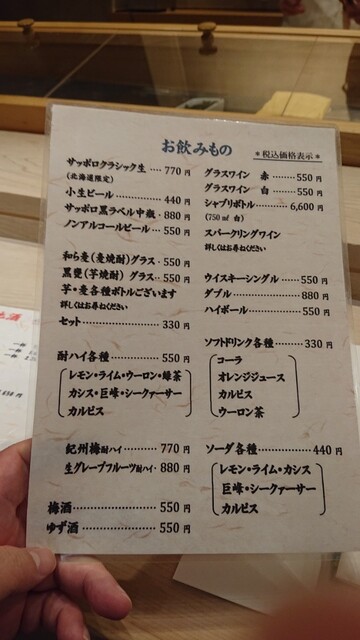 お飲みもの
＊税込価格表示＊
サッポロクラシック生 ‥‥ 770 円
(北海道限定)
小生ビール ‥‥‥‥‥ 440 円
サッポロ黒ラベル中瓶 ‥ 880 円
ノンアルコールビール ‥‥ 550 円
和ら麦(麦焼酎)グラス ‥ 550 円
黒甕(芋焼酎) グラス ‥ 550 円
芋・麦各種ボトルございます
詳しくはお尋ねください
セット ‥‥‥‥‥‥‥ 330 円
酎ハイ各種 ‥‥‥‥‥ 550 円
レモン・ライム・ウーロン・緑茶
カシス・巨峰・シークァーサー
カルピス
紀州梅酎ハイ ‥‥‥‥ 770 円
生グレープフルーツ酎ハイ ‥ 880 円
梅酒 ‥‥‥‥‥‥‥‥ 550 円
ゆず酒 ‥‥‥‥‥‥‥ 550 円
グラスワイン 赤 ‥‥‥ 550 円
グラスワイン 白 ‥‥‥ 550 円
シャブリボトル ‥‥‥ 6,600 円
(750㎖ 白)
スパークリングワイン
詳しくはお尋ねください
ウイスキーシングル ‥‥‥ 550 円
ダブル ‥‥‥‥‥‥‥ 880 円
ハイボール ‥‥‥‥‥ 550 円
ソフトドリンク各種 ‥‥‥ 330 円
コーラ
オレンジジュース
カルピス
ウーロン茶
ソーダ各種 ‥‥‥‥‥ 440 円
レモン・ライム・カシス
巨峰・シークァーサー
カルピス